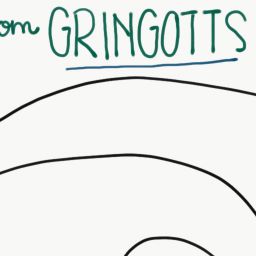 om GRINGOTTS